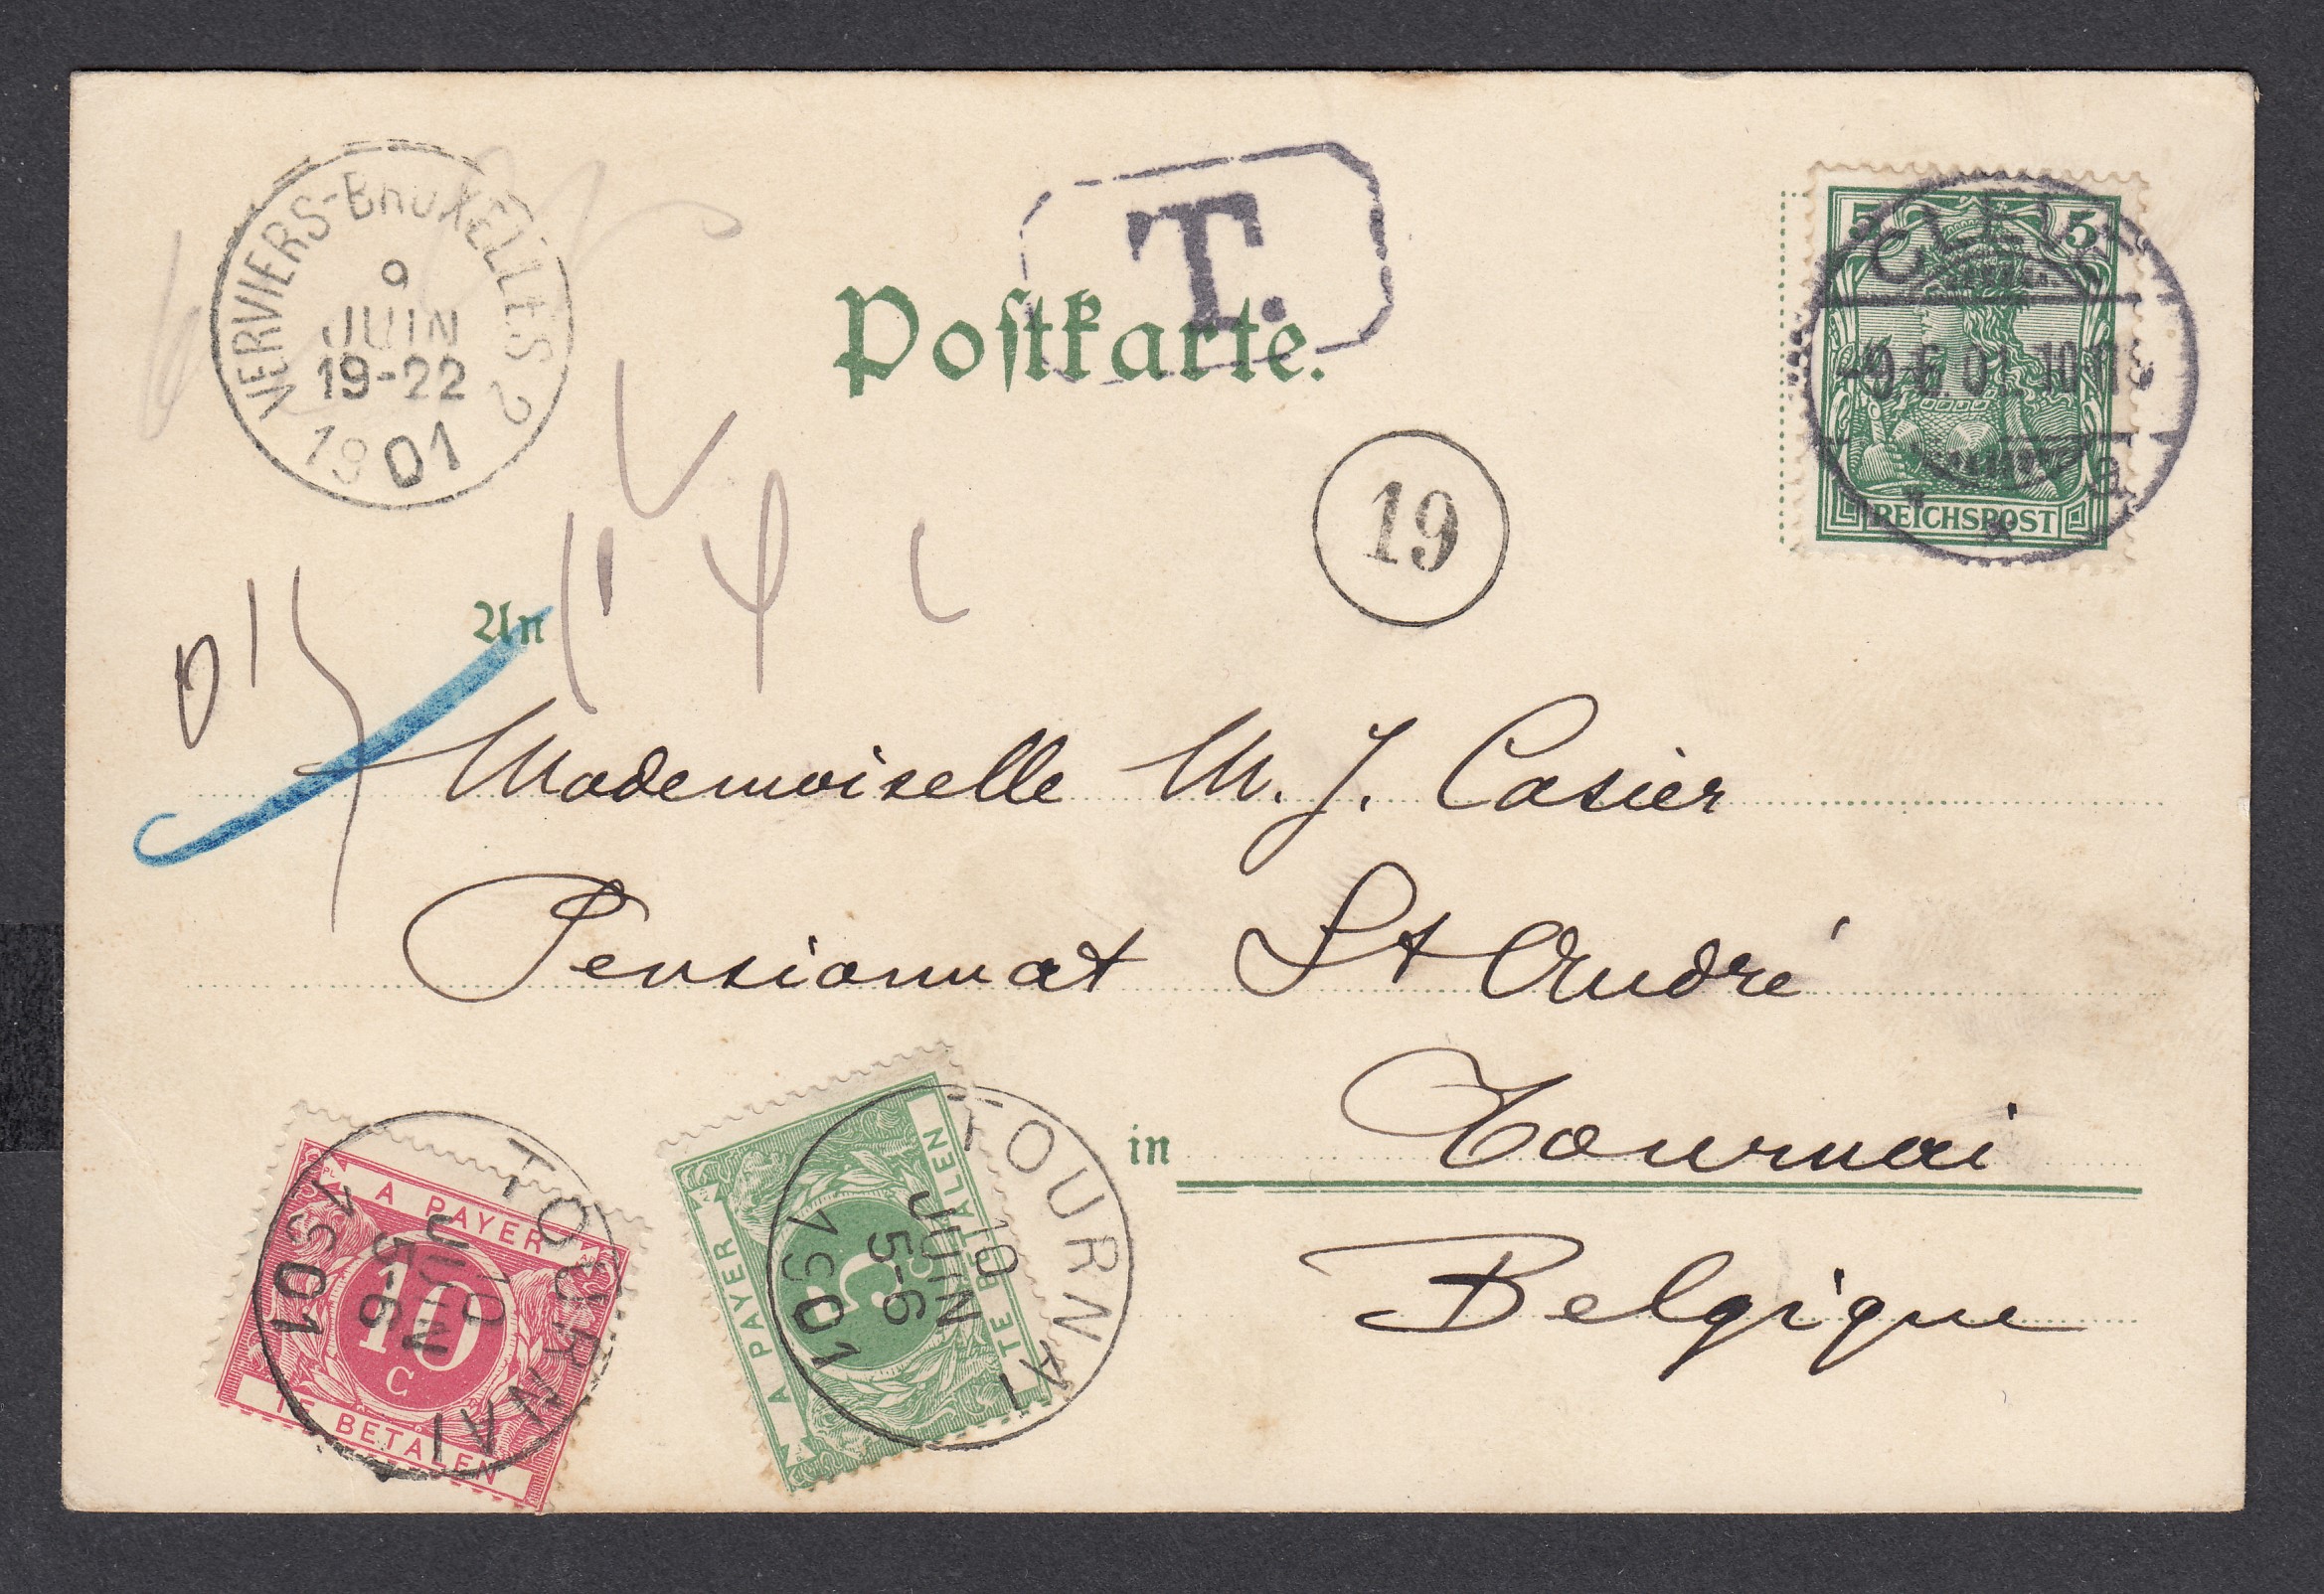 VERVIERS-BRUXELLES 2
9
JUIN
19-22
1901
T.
Postkarte.
19
5 5
-9.6.01.10-11
a
REICHSPOST
An
Mademoiselle M. J. Casier
Pensionnat St André
in Tournai
Belgique
A PAYER
10
C
TE BETALEN
TOURNAI
10
JUIN
5-6
1901
A PAYER
5
C
TE BETALEN
TOURNAI
10
JUIN
5-6
1901